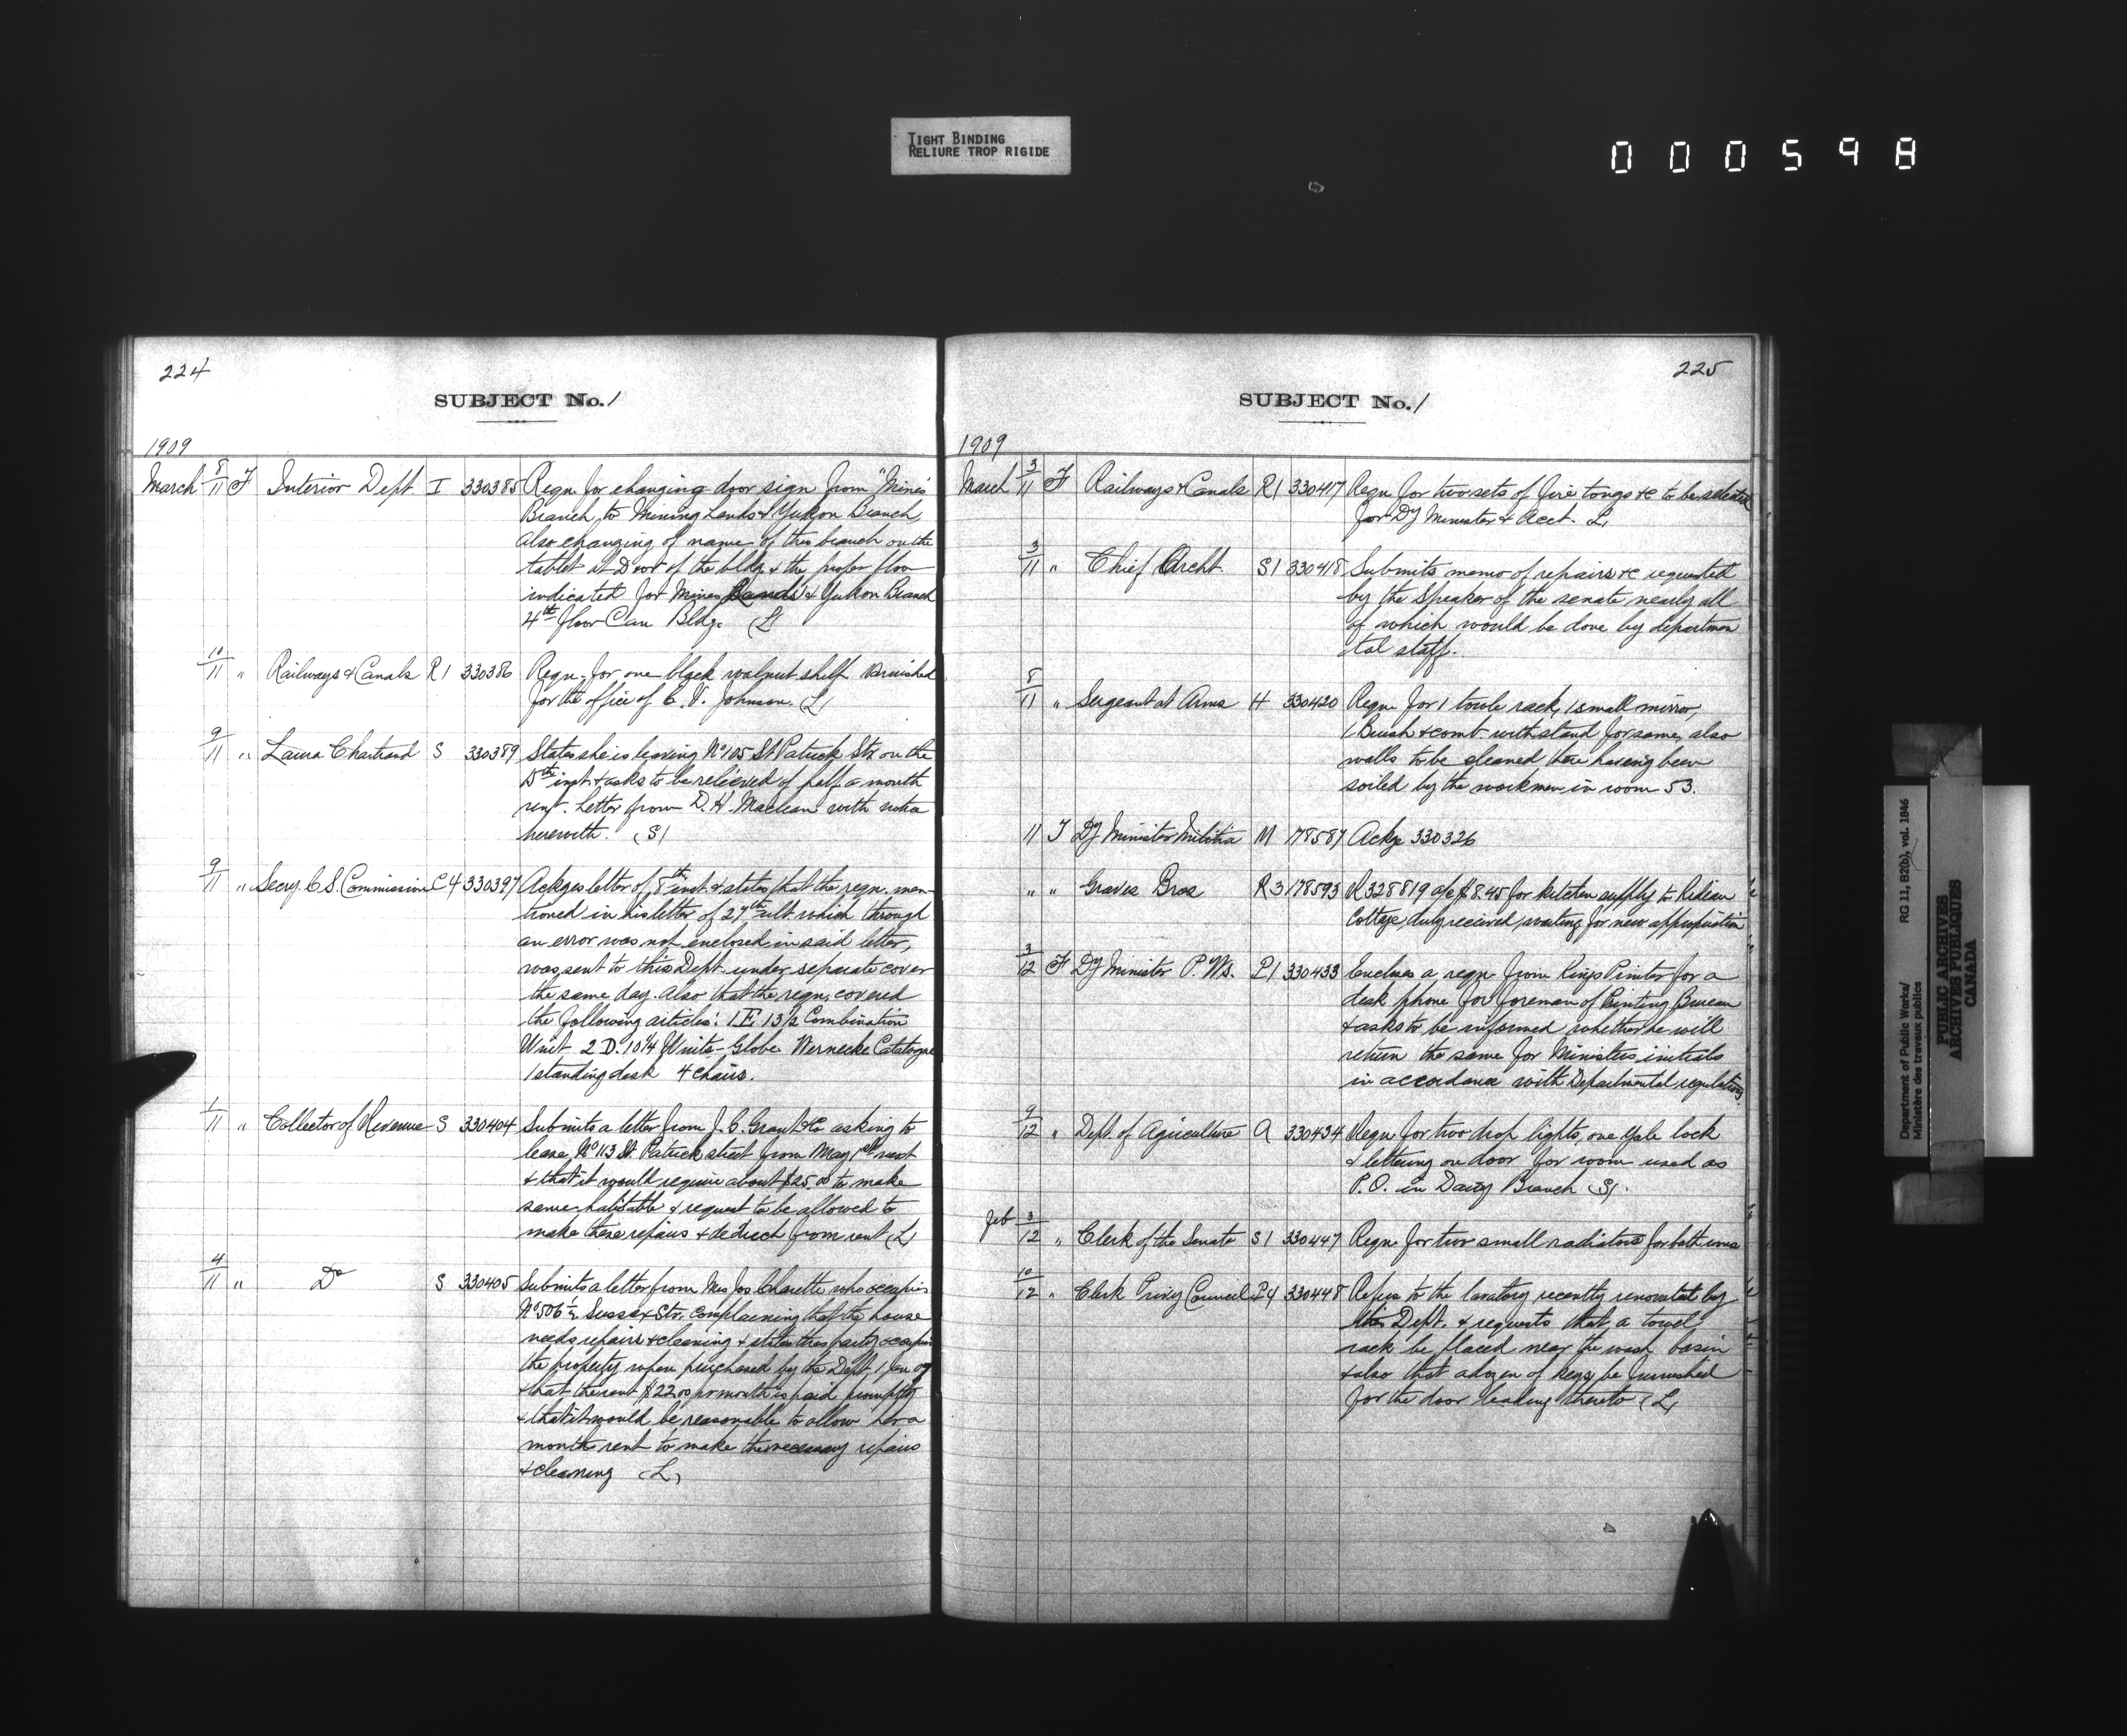 TIGHT BINDING
RELIURE TROP RIGIDE
000598
224
SUBJECT No. 1
1909
March 8/11 F Interior Dept I 330385 Reqn for changing door sign from "Mines
Branch, to Mining Lands & Yukon Branch,
also changing of name of this branch on the
tablet at Door of the bldg. & the proper floor
indicated for Mines Lands & Yukon Branch
4th floor Can Bldg. (L)
10/11 " Railways & Canals R1 330386 Reqn. for one black walnut shelf varnished
for the office of C. V. Johnson. (L)
9/11 " Laura Chartrand S 330389 States she is leaving No 105 St Patrick Str. on the
15th inst & asks to be relieved of half a month
rent. Letter from D. H. Maclean with
herewith. (S)
9/11 " Secry. C. S. Commission C4 330397 Ackges letter of 8th inst. & states that the reqn. men-
tioned in his letter of 27th ult which through
an error was not enclosed in said letter,
was sent to this Dept under separate cover
the same day. Also that the reqn. covered
the following articles: 1 E. 13½ Combination
Unit 2 D. 10¼ Units - Globe Wernecke Catalogue
1 standing desk 4 chairs.
1/11 " Collector of Revenue S 330404 Submits a letter from J. C. Grant & Co asking to
lease No 113 St. Patrick street from May 1st next
& that it would require about $25.00 to make
same habitable & request to be allowed to
make these repairs & deduct from rent (L)
4/11 " Do S 330405 Submits a letter from Mrs Jos Charette who occupies
No 506½ Sussex Str. complaining that the house
needs repairs & cleaning & states this party occupied
the property when purchased by the Dept. 1 Jan 09
& that the rent $22.00 pr month is paid promptly
& that it would be reasonable to allow her a
month rent to make the necessary repairs
& cleaning (L)
225
SUBJECT No. 1
1909
March 3/11 F Railways & Canals R1 330417 Reqn for two sets of fire tongs &c to be selected
for Dy Minister & Acct. L
3/11 " Chief Archt. S1 330418 Submits memo of repairs &c requested
by the Speaker of the senate nearly all
of which would be done by departmen
tal staff.
8/11 " Sergeant at Arms H 330420 Reqn for 1 towle rack, 1 small mirror,
1 Brush & comb with stand for same, also
walls to be cleaned there having been
soiled by the workmen in room 53.
11 T Dy Minister Militia M 178587 Ackge 330326
" " Graves Bros R3 178593 R 328819 a/c $8.45 for kitchen supply to Rideau
Cottage duly received, waiting for new appropriation
3/12 F Dy Minister P. Ws. P1 330433 Encloses a reqn from Kings Printer for a
desk phone for foreman of Printing Bureau
& asks to be informed whether he will
return the same for Ministers initials
in accordance with Departmental regulations
9/12 " Dept of Agriculture A 330434 Reqn for two drop lights, one Yale lock
& lettering on door for room used as
P.O. in Dairy Branch (S).
Feb 3/12 " Clerk of the Senate S1 330447 Reqn for two small radiators for bath rooms
10/12 " Clerk Privy Council P4 330448 Refers to the lavatory recently renovated by
this Dept. & requests that a towel
rack be placed near the wash basin
& also that a dozen of keys be furnished
for the door leading thereto (L)
Department of Public Works/ RG 11, B2(b), vol. 1846
Ministère des travaux publics
PUBLIC ARCHIVES
ARCHIVES PUBLIQUES
CANADA